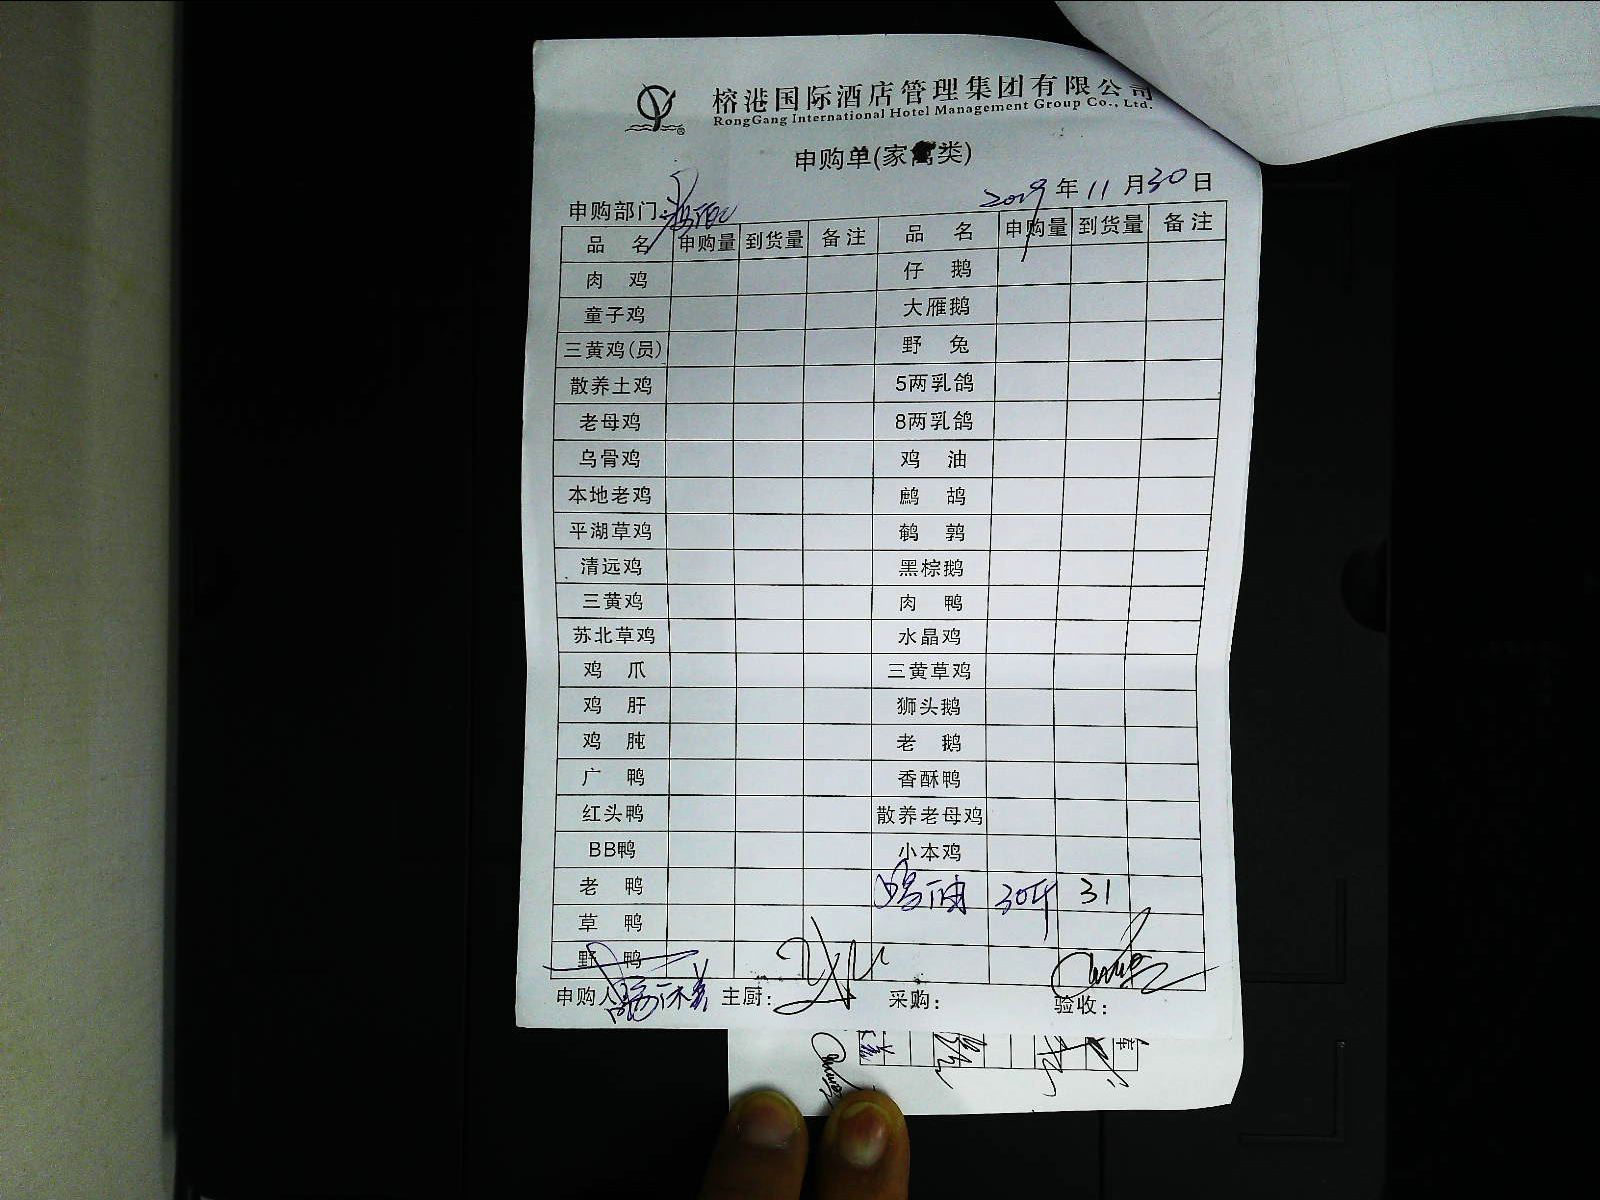 榕港国际酒店管理集团有限公司
RongGang International Hotel Management Group Co., Ltd.
申购单(家禽类)
2019年11月30日
申购部门:
品名 申购量 到货量 备注 品名 申购量 到货量 备注
肉鸡 仔鹅
童子鸡 大雁鹅
三黄鸡(员) 野兔
散养土鸡 5两乳鸽
老母鸡 8两乳鸽
乌骨鸡 鸡油
本地老鸡 鹧鸪
平湖草鸡 鹌鹑
清远鸡 黑棕鹅
三黄鸡 肉鸭
苏北草鸡 水晶鸡
鸡爪 三黄草鸡
鸡肝 狮头鹅
鸡肫 老鹅
广鸭 香酥鸭
红头鸭 散养老母鸡
BB鸭 小本鸡
老鸭 鸡油 30斤 31
草鸭
野鸭
申购人 主厨: 采购: 验收:
库